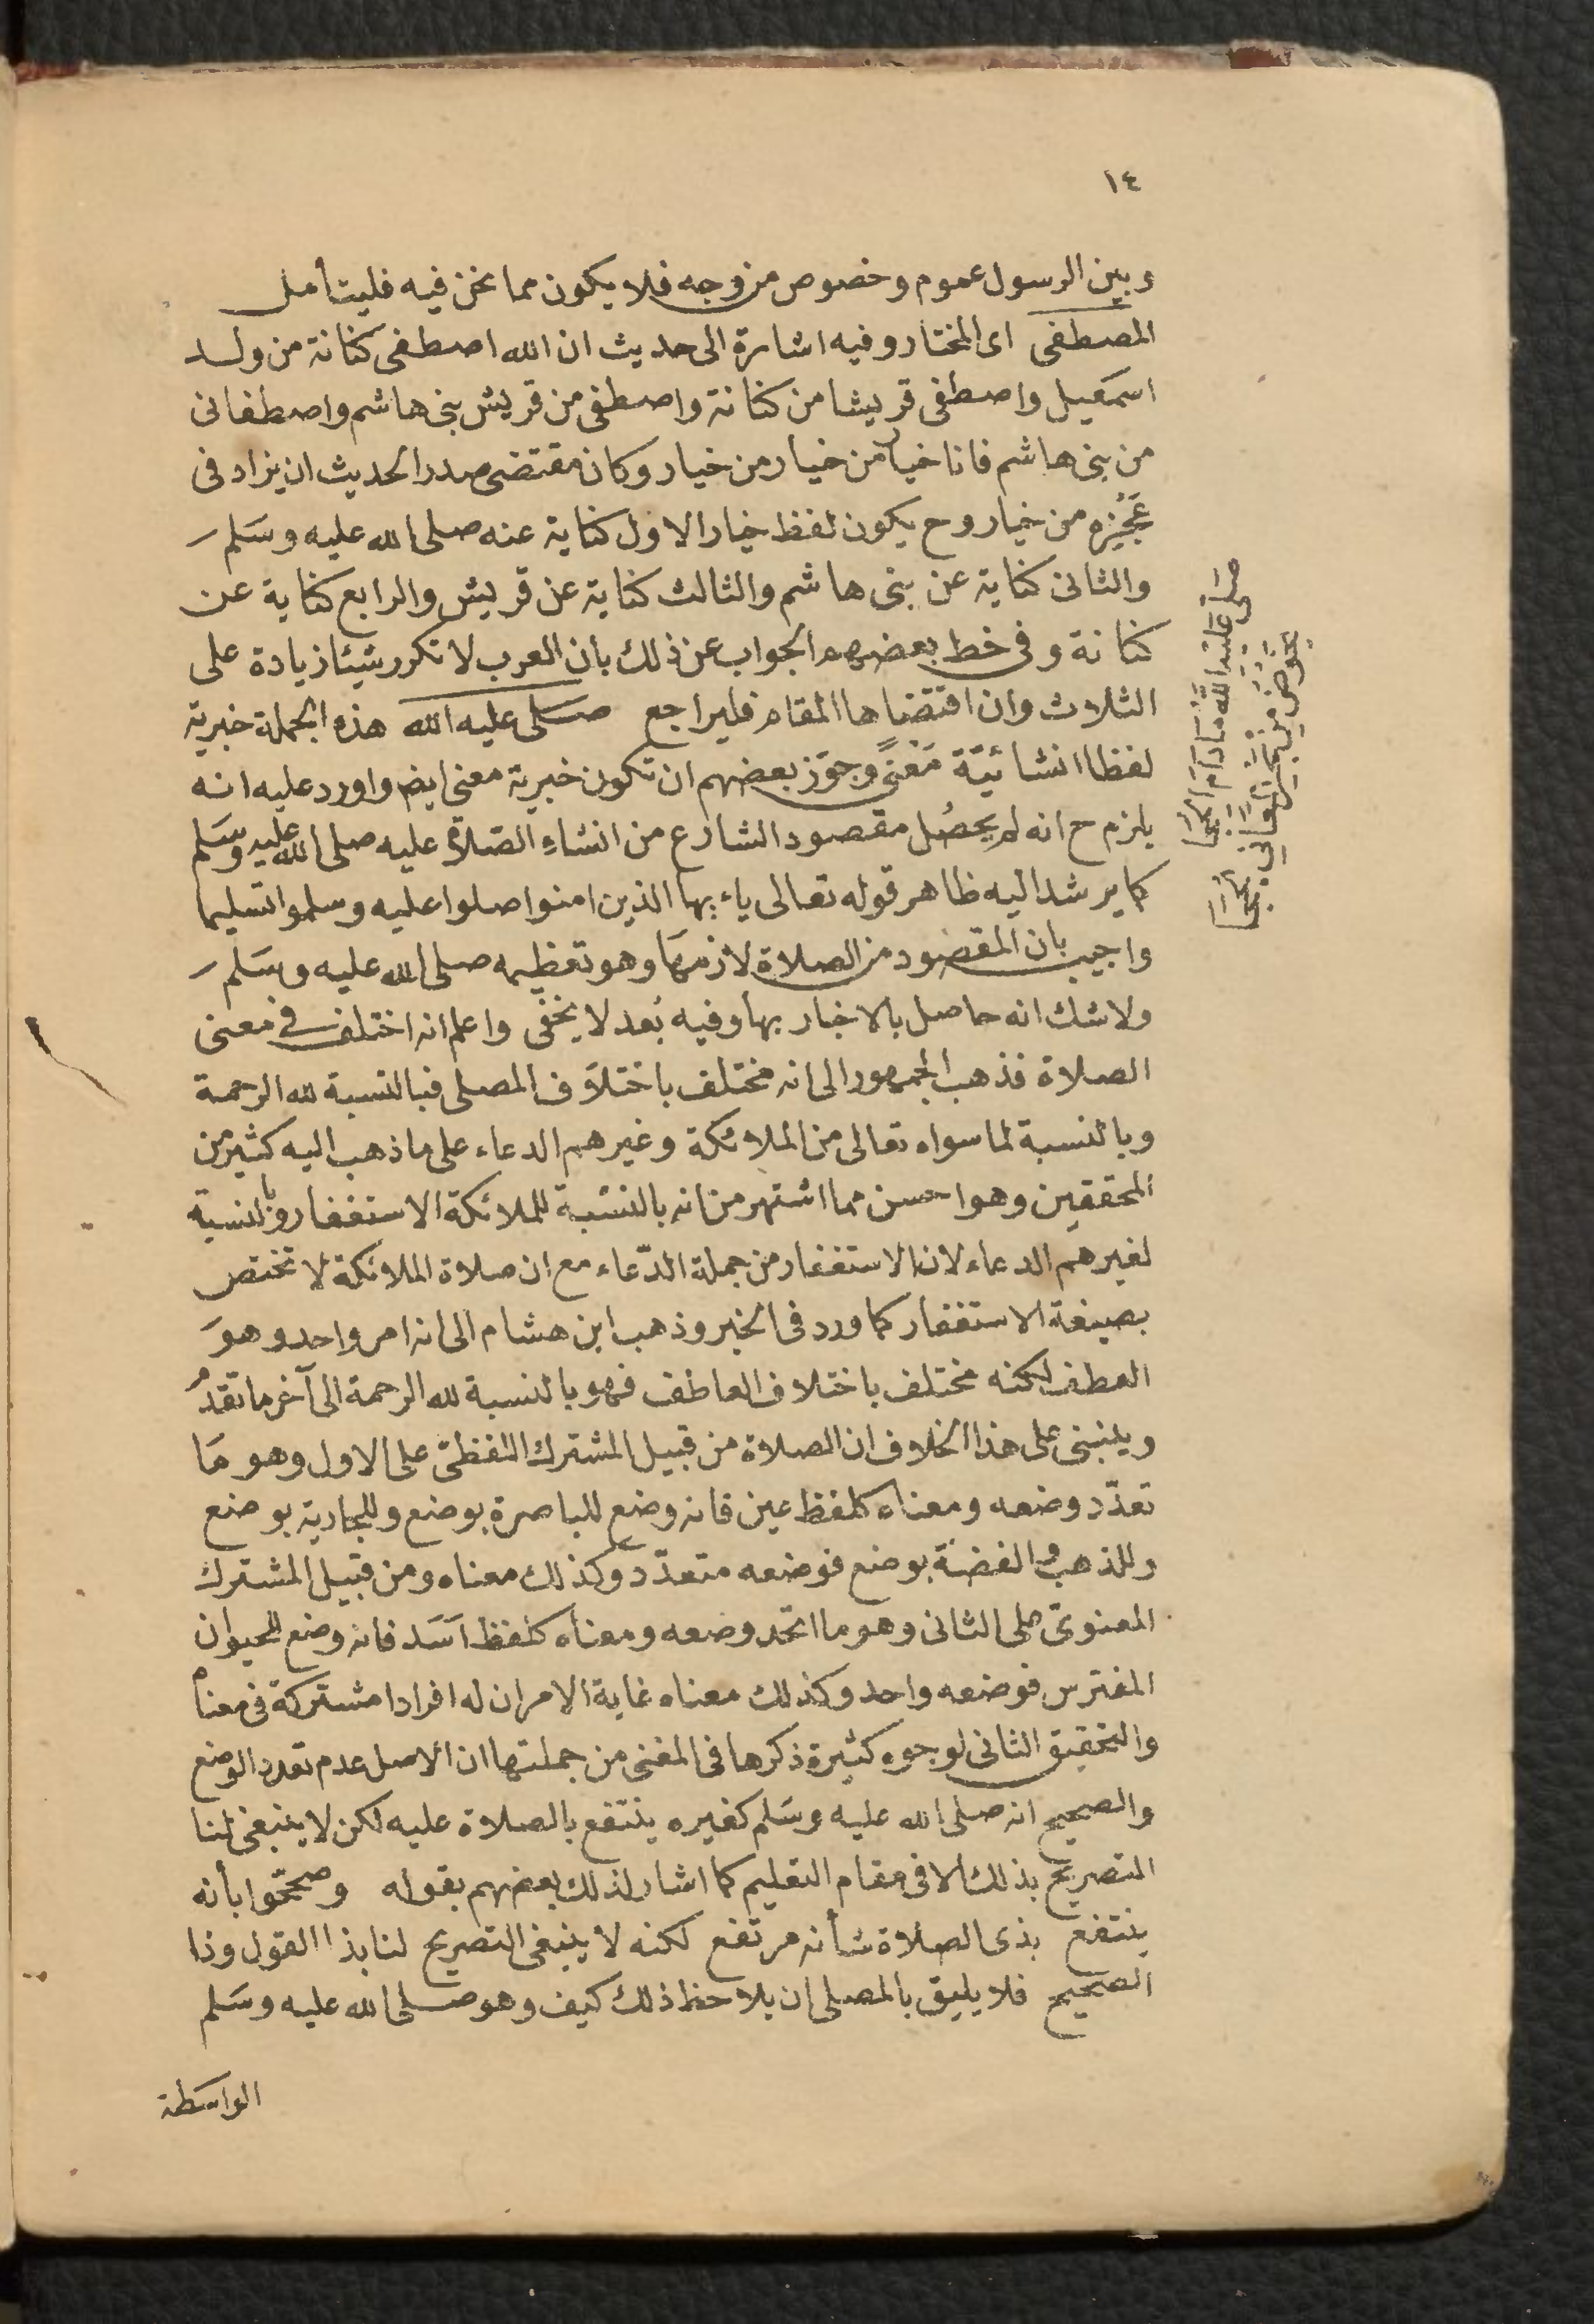 ١٤
وبين الرسول عموم وخصوص من وجه فلا يكون مما نحن فيه فليتأمل
المصطفى اى المختار وفيه اشارة الى حديث ان الله اصطفى كنانة من ولد
اسمعيل واصطفى قريشا من كنانة واصطفى من قريش بنى هاشم واصطفانى
من بنى هاشم فانا خيار من خيار من خيار وكان مقتضى صدر الحديث ان يزاد فى
عَجُزِه من خيار وح يكون لفظ خيار الاول كناية عنه صلى الله عليه وسَلم
والثانى كناية عن بنى هاشم والثالث كناية عن قريش والرابع كناية عن
كنانة وفى خط بعضهم الجواب عن ذلك بان العرب لا تكرر شيئا زيادة على
الثلاث وان اقتضاها المقام فليراجع صَلى عليه الله هذه الجملة خبرية
لفظا انشائيّة مَعْنىً وجوّز بعضهم ان تكون خبرية معنى ايض واورد عليه انه
يلزم ح انه لم يحصُل مقصود الشارع من انشاءِ الصّلاة عليه صلى الله عليه وسَلم
كما يرشد اليه ظاهر قوله تعالى ياءيها الذين امنوا صلوا عليه وسلموا تسليما
واجيب بان المقصود من الصلاة لازمهَا وهو تعظيمه صلى الله عليه وسَلم
ولا شك انه حاصل بالاخبار بها وفيه بُعد لا يخفى واعلم انه اختلف فى معنى
الصلاة فذهب الجمهور الى انه مختلف باختلاف المصلى فبالنسبة لله الرحمة
وبالنسبة لما سواه تعالى من الملائكة وغيرهم الدعاء على ما ذهب اليه كثير من
المحققين وهو احسن مما اشتهر من انه بالنسبة للملائكة الاستغفار وبالنسبة
لغيرهم الدعاء لان الاستغفار من جملة الدّعاء مع ان صلاة الملائكة لا تختص
بصيغة الاستغفار كما ورد فى الخبر وذهب ابن هشام الى انه امر واحد وهوَ
العطف لكنه مختلف باختلاف العاطف فهو بالنسبة لله الرحمة الى آخر ما تقدم
وينبنى على هذا الخلاف ان الصلاة من قبيل المشترك اللفظىّ على الاول وهو مَا
تعدّد وضعه ومعناه كلفظ عين فانه وضع للباصرة بوضع وللجارية بوضع
وللذهب والفضة بوضع فوضعه متعدّد وكذلك معناه ومن قبيل المشترك
المعنوىّ على الثانى وهو ما اتحد وضعه ومعناه كلفظ اَسَد فانه وضع للحيوان
المفترس فوضعه واحد وكذلك معناه غاية الامر ان له افرادا مشتركة فى معناه
والتحقيق الثانى لوجوه كثيرة ذكرها فى المغنى من جملتها ان الاصل عدم تعدد الوضع
والصحيح انه صلى الله عليه وسَلم كغيره ينتفع بالصلاة عليه لكن لا ينبغى لنا
التصريح بذلك الا فى مقام التعليم كما اشار لذلك بعضهم بقوله وصححّوا بأنه
ينتفع بذى الصلاة شأنه مرتفع لكنه لا ينبغى التصريح لنا بذا القول وذا
الصحيح فلا يليق بالمصلى ان يلاحظ ذلك كيف وهو صلى الله عليه وسَلم
الواسَطة
صَلى عَليْه اللهُ مَا دَامَ الحِجَا
يخوض من بحر المعانى لججا